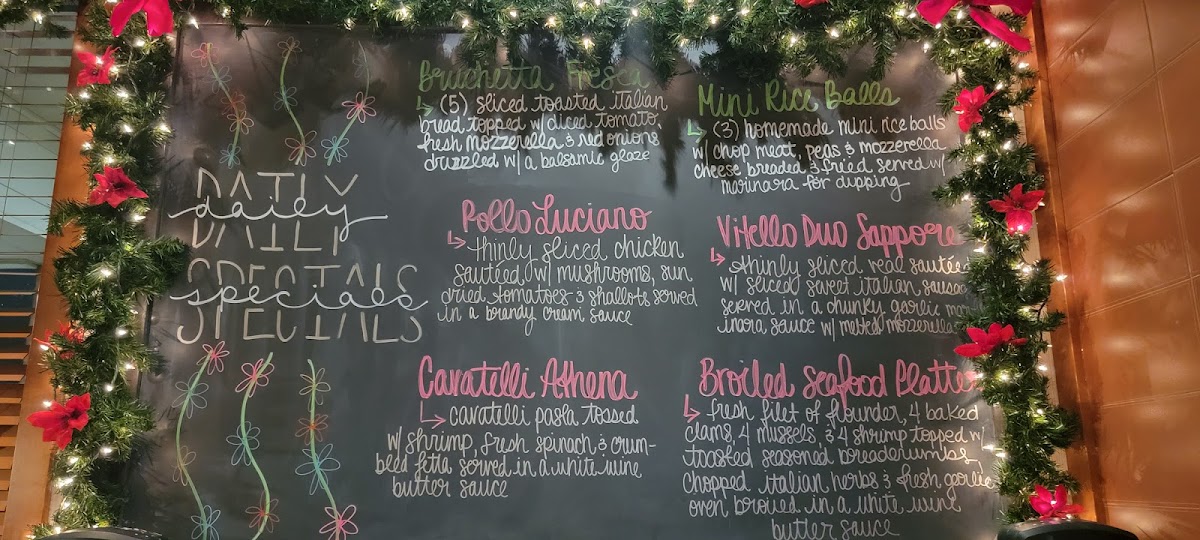 DAILY
daily
SPECIALS
specials
Bruchetta Fresca
(5) sliced toasted italian
bread topped w/ diced tomato,
fresh mozzerella & red onions
drizzled w/ a balsamic glaze
Mini Rice Balls
(3) homemade mini rice balls
w/ chop meat, peas & mozzerella
cheese breaded & fried served w/
marinara for dipping
Pollo Luciano
thinly sliced chicken
sautéed w/ mushrooms, sun
dried tomatoes & shallots served
in a brandy cream sauce
Vitello Duo Sappore
thinly sliced veal sautéed
w/ sliced sweet italian sausage
served in a chunky garlic mar
inara sauce w/ melted mozzerella
Cavatelli Athena
cavatelli pasta tossed
w/ shrimp, fresh spinach & crum-
bled fetta served in a white wine
butter sauce
Broiled Seafood Platter
fresh filet of flounder, 4 baked
clams, 4 mussels, & 4 shrimp topped w/
toasted seasoned breadcrumbs,
chopped italian herbs & fresh garlic
oven broiled in a white wine
butter sauce